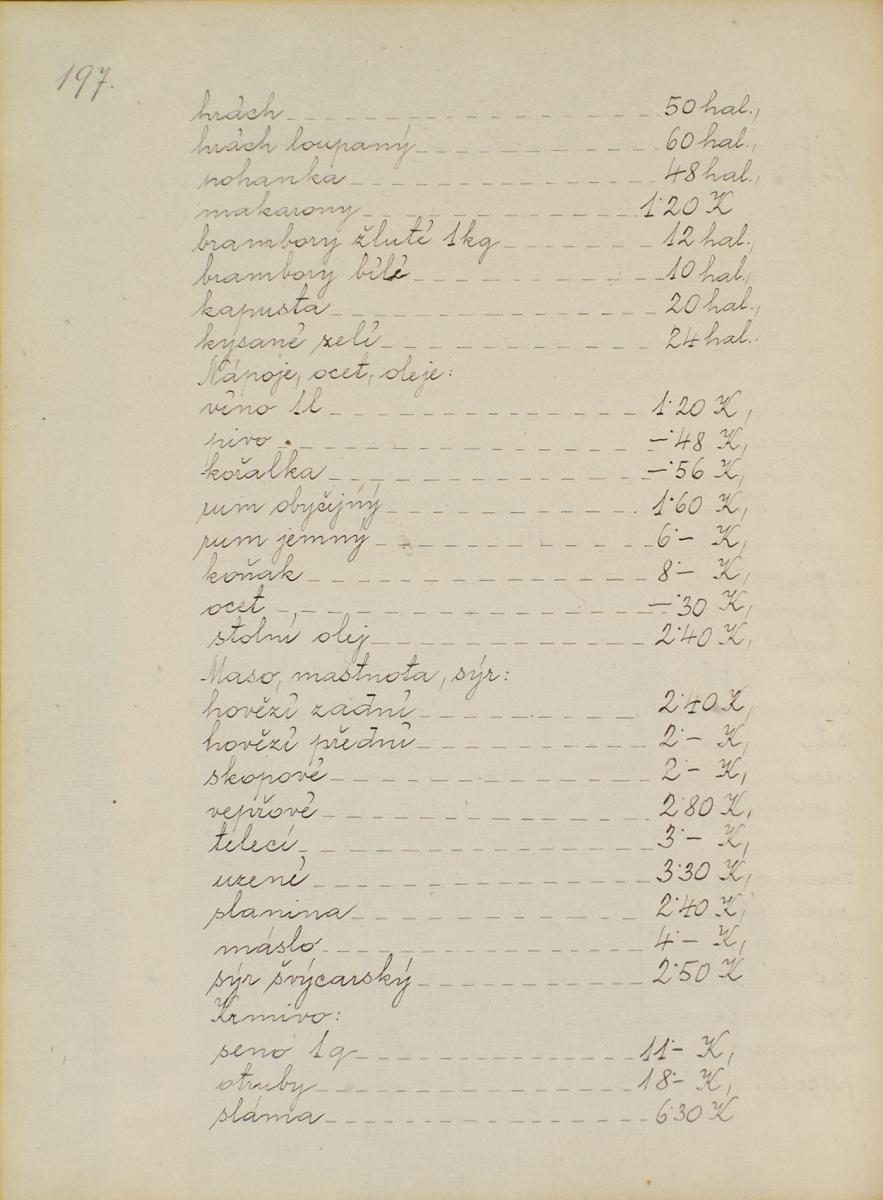 197.
hrách 50 hal.,
hrách loupaný 60 hal.,
pohanka 48 hal.,
makarony 1·20 K
brambory žluté 1kg 12 hal.,
brambory bílé 10 hal.,
kapusta 20 hal.,
kysané zelí 24 hal..
Nápoje, ocet, oleje:
víno 1l 1·20 K,
pivo –·48 K,
kořalka –·56 K,
rum obyčejný 1·60 K,
rum jemný 6·– K,
koňak 8·– K,
ocet –·30 K,
stolní olej 2·40 K,
Maso, mastnota, sýr:
hovězí zadní 2·40 K,
hovězí přední 2·– K,
skopové 2·– K,
vepřové 2·80 K,
telecí 3·– K,
uzené 3·30 K,
slanina 2·40 K,
máslo 4·– K,
sýr švýcarský 2·50 K
Krmivo:
seno 1q 11·– K,
otruby 18·– K,
sláma 6·30 K